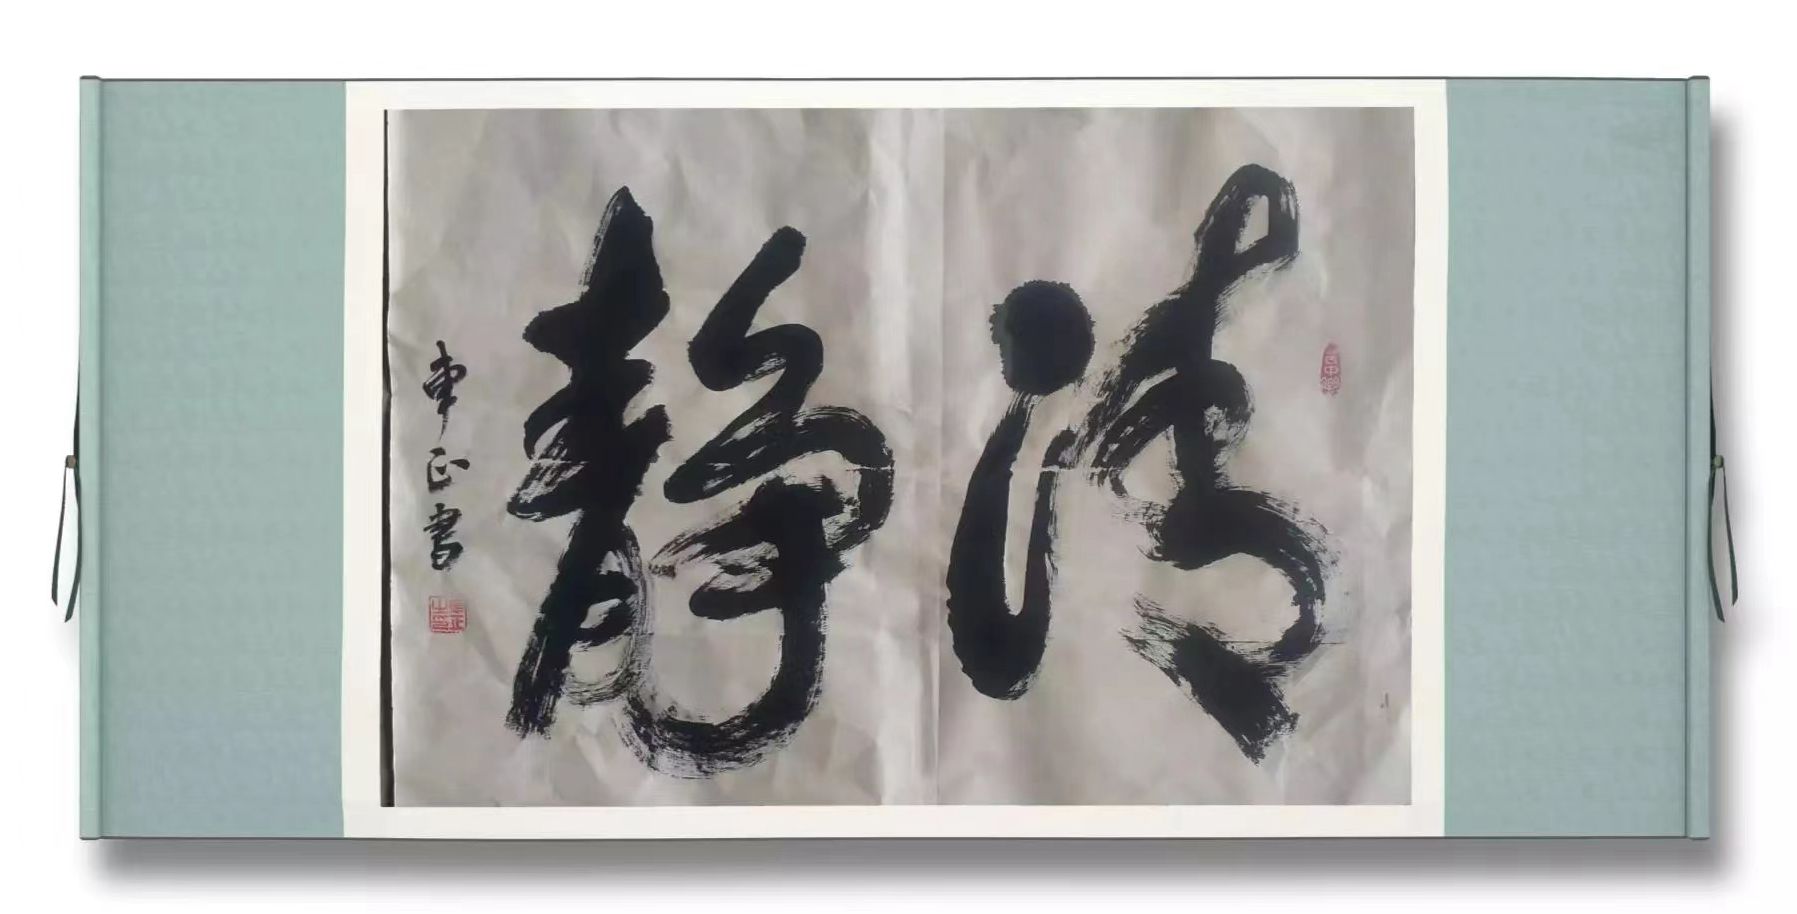 清静
車正書